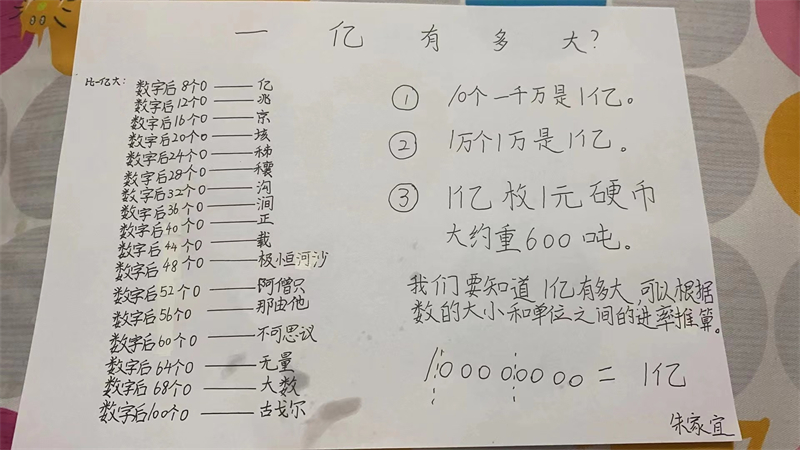 一亿有多大?
比一亿大:
数字后8个0——亿
数字后12个0——兆
数字后16个0——京
数字后20个0——垓
数字后24个0——秭
数字后28个0——穰
数字后32个0——沟
数字后36个0——涧
数字后40个0——正
数字后44个0——载
数字后48个0——极恒河沙
数字后52个0——阿僧只
数字后56个0——那由他
数字后60个0——不可思议
数字后64个0——无量
数字后68个0——大数
数字后100个0——古戈尔
① 10个一千万是1亿。
② 1万个1万是1亿。
③ 1亿枚1元硬币
大约重600吨。
我们要知道1亿有多大,可以根据
数的大小和单位之间的进率推算。
100000000=1亿
朱家宜